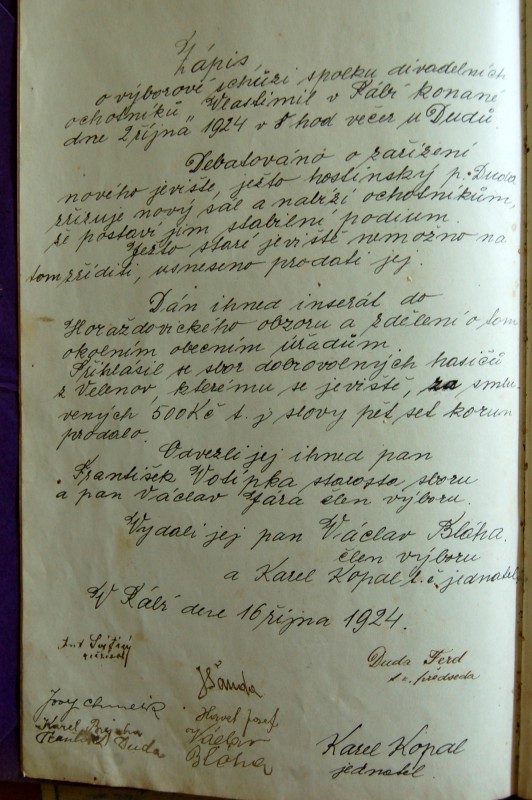 Zápis
o výborové schůzi spolku divadelních
ochotníků "Vlastimil v Kálí konané
dne 2 října" 1924 v 8 hod večer u Dudů
Debatováno o zařízení
nového jeviště, ježto hostinský p. Duda
zřizuje nový sál a nabízí ochotníkům,
že postaví jim stabilení podium.
Ježto staré jeviště nemožno na
tom zříditi, usneseno prodati jej.
Dán ihned inserát do
Horažďovického obzoru a zdělení o tom
okolním obecním úřadům.
Přihlásil se sbor dobrovolných hasičů
z Velenov, kterému se jeviště, za smlu
vených 500 Kč t. j slovy pět set korun
prodalo.
Odvezli jej ihned pan
František Votipka starosta sboru
a pan Václav Jára člen výboru.
Vydali jej pan Václav Bláha.
člen výboru
a Karel Kopal t. č. jednatel
V Kálí dne 16 října 1924.
Duda Ferd
t. č. předseda
J Šanda
Horvet Josef
Karel
František Duda
Václav
Bláha
Karel Kopal
jednatel.